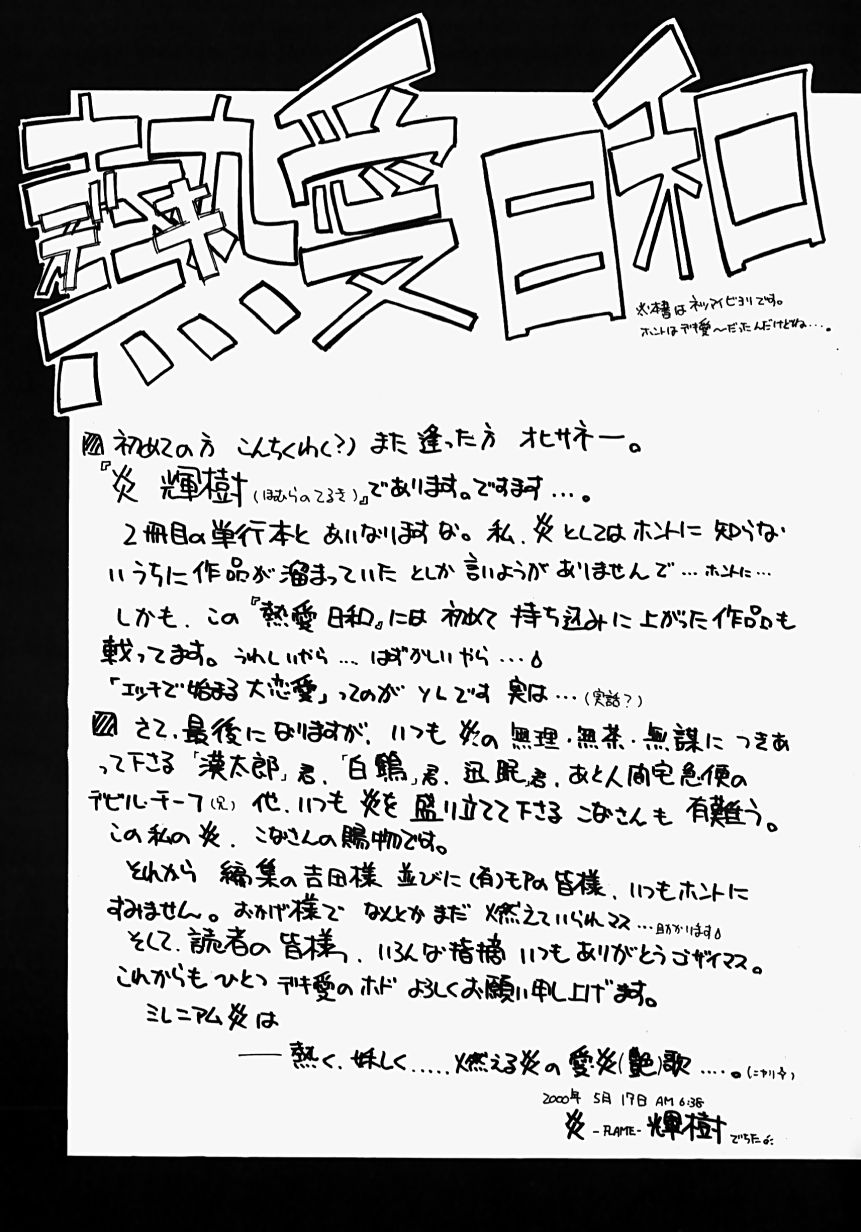 熱愛日和
デキ
※本書はネツアイビヨリです。
ホントはデキ愛〜だったんだけどね…。
初めての方 こんちくわ(?) また逢った方 オヒサネー。
『炎 輝樹(ほむらのてるき)』であります。ですます…。
2冊目の単行本と あいなりますな。私、炎としてはホントに知らな
いうちに作品が溜まっていた としか言いようがありませんで…ホントに…
しかも、この『熱愛日和』には初めて持ち込みに上がった作品も
載ってます。うれしいやら…はずかしいやら…
「エッチで始まる大恋愛」ってのが ソレです 実は…(実話?)
さて、最後になりますが、いつも炎の無理・無茶・無謀につきあ
って下さる「漢太郎」君、「白鶴」君、迅眠君、あと人間宅急便の
デビル・チーフ(兄)他、いつも炎を盛り立てて下さる こなさんも有難う。
この私の炎、こなさんの賜物です。
それから 編集の吉田様 並びに(有)モアの皆様、いつもホントに
すみません。おかげ様で なんとかまだ 燃えていられマス…助かります
そして、読者の皆様っ、いろんな指摘 いつもありがとうゴザイマス。
これからも ひとつ デキ愛のホド よろしくお願い申し上げます。
ミレニアム炎は
――熱く、妖しく.....燃える炎の愛炎(艶)歌....。(ニヤリ)
2000年 5月 17日 AM 6:38
炎 -FLAME- 輝樹でちたよ